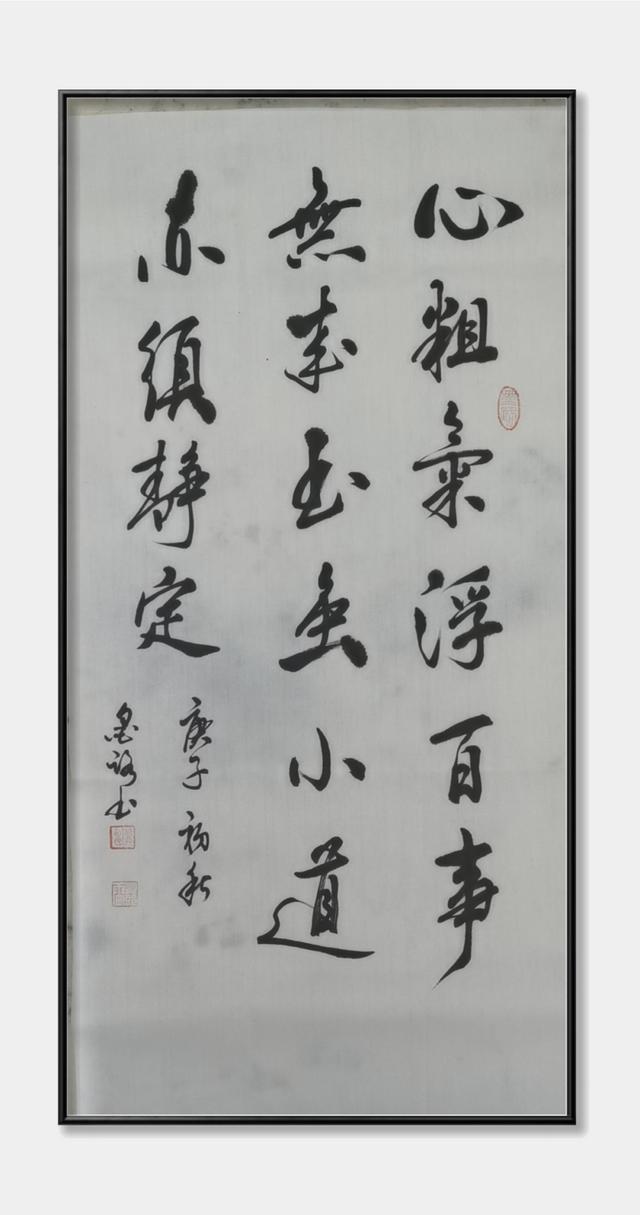 心粗氣浮百事
無成書畫小道
亦須靜定
庚子初秋
書